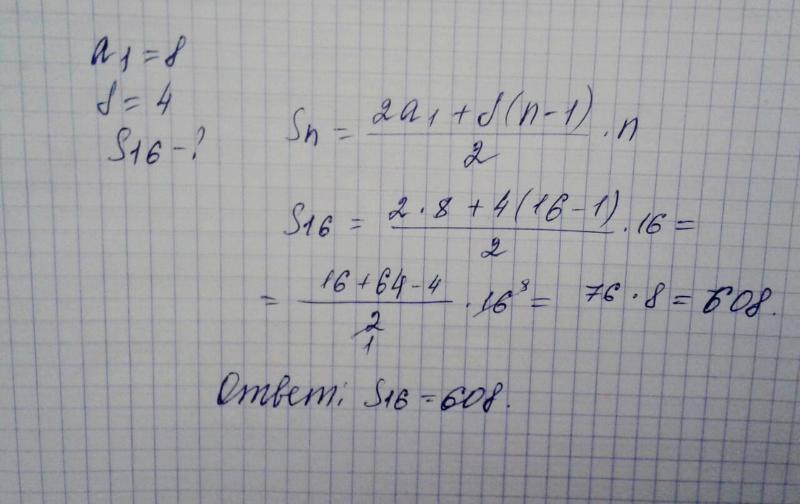 a₁ = 8
d = 4
S₁₆ - ?
Sₙ = (2a₁ + d(n-1))/2 · n
S₁₆ = (2·8 + 4(16-1))/2 · 16 =
= (16 + 64 - 4)/2 1 · 16 8 = 76 · 8 = 608.
Ответ: S₁₆ = 608.